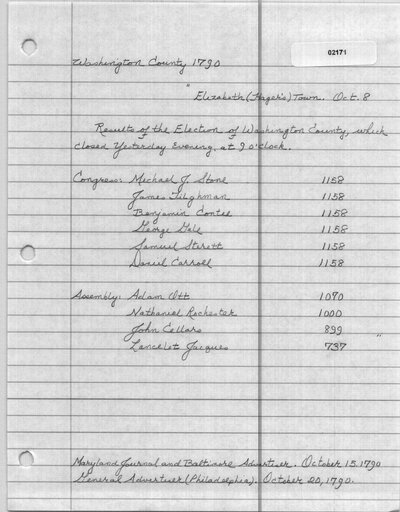 02171
Washington County 1790
"Elizabeth (Hager's) Town. Oct. 8
Results of the Election of Washington County, which
closed Yesterday Evening, at 9 o'clock.
Congress: Michael J. Stone 1158
James Tilghman 1158
Benjamin Contee 1158
George Gale 1158
Samuel Sterett 1158
Daniel Carroll 1158
Assembly: Adam Ott 1070
Nathaniel Rochester 1000
John Cellars 899
Lancelot Jacques 737"
Maryland Journal and Baltimore Advertiser. October 15, 1790
General Advertiser (Philadelphia). October 20, 1790.